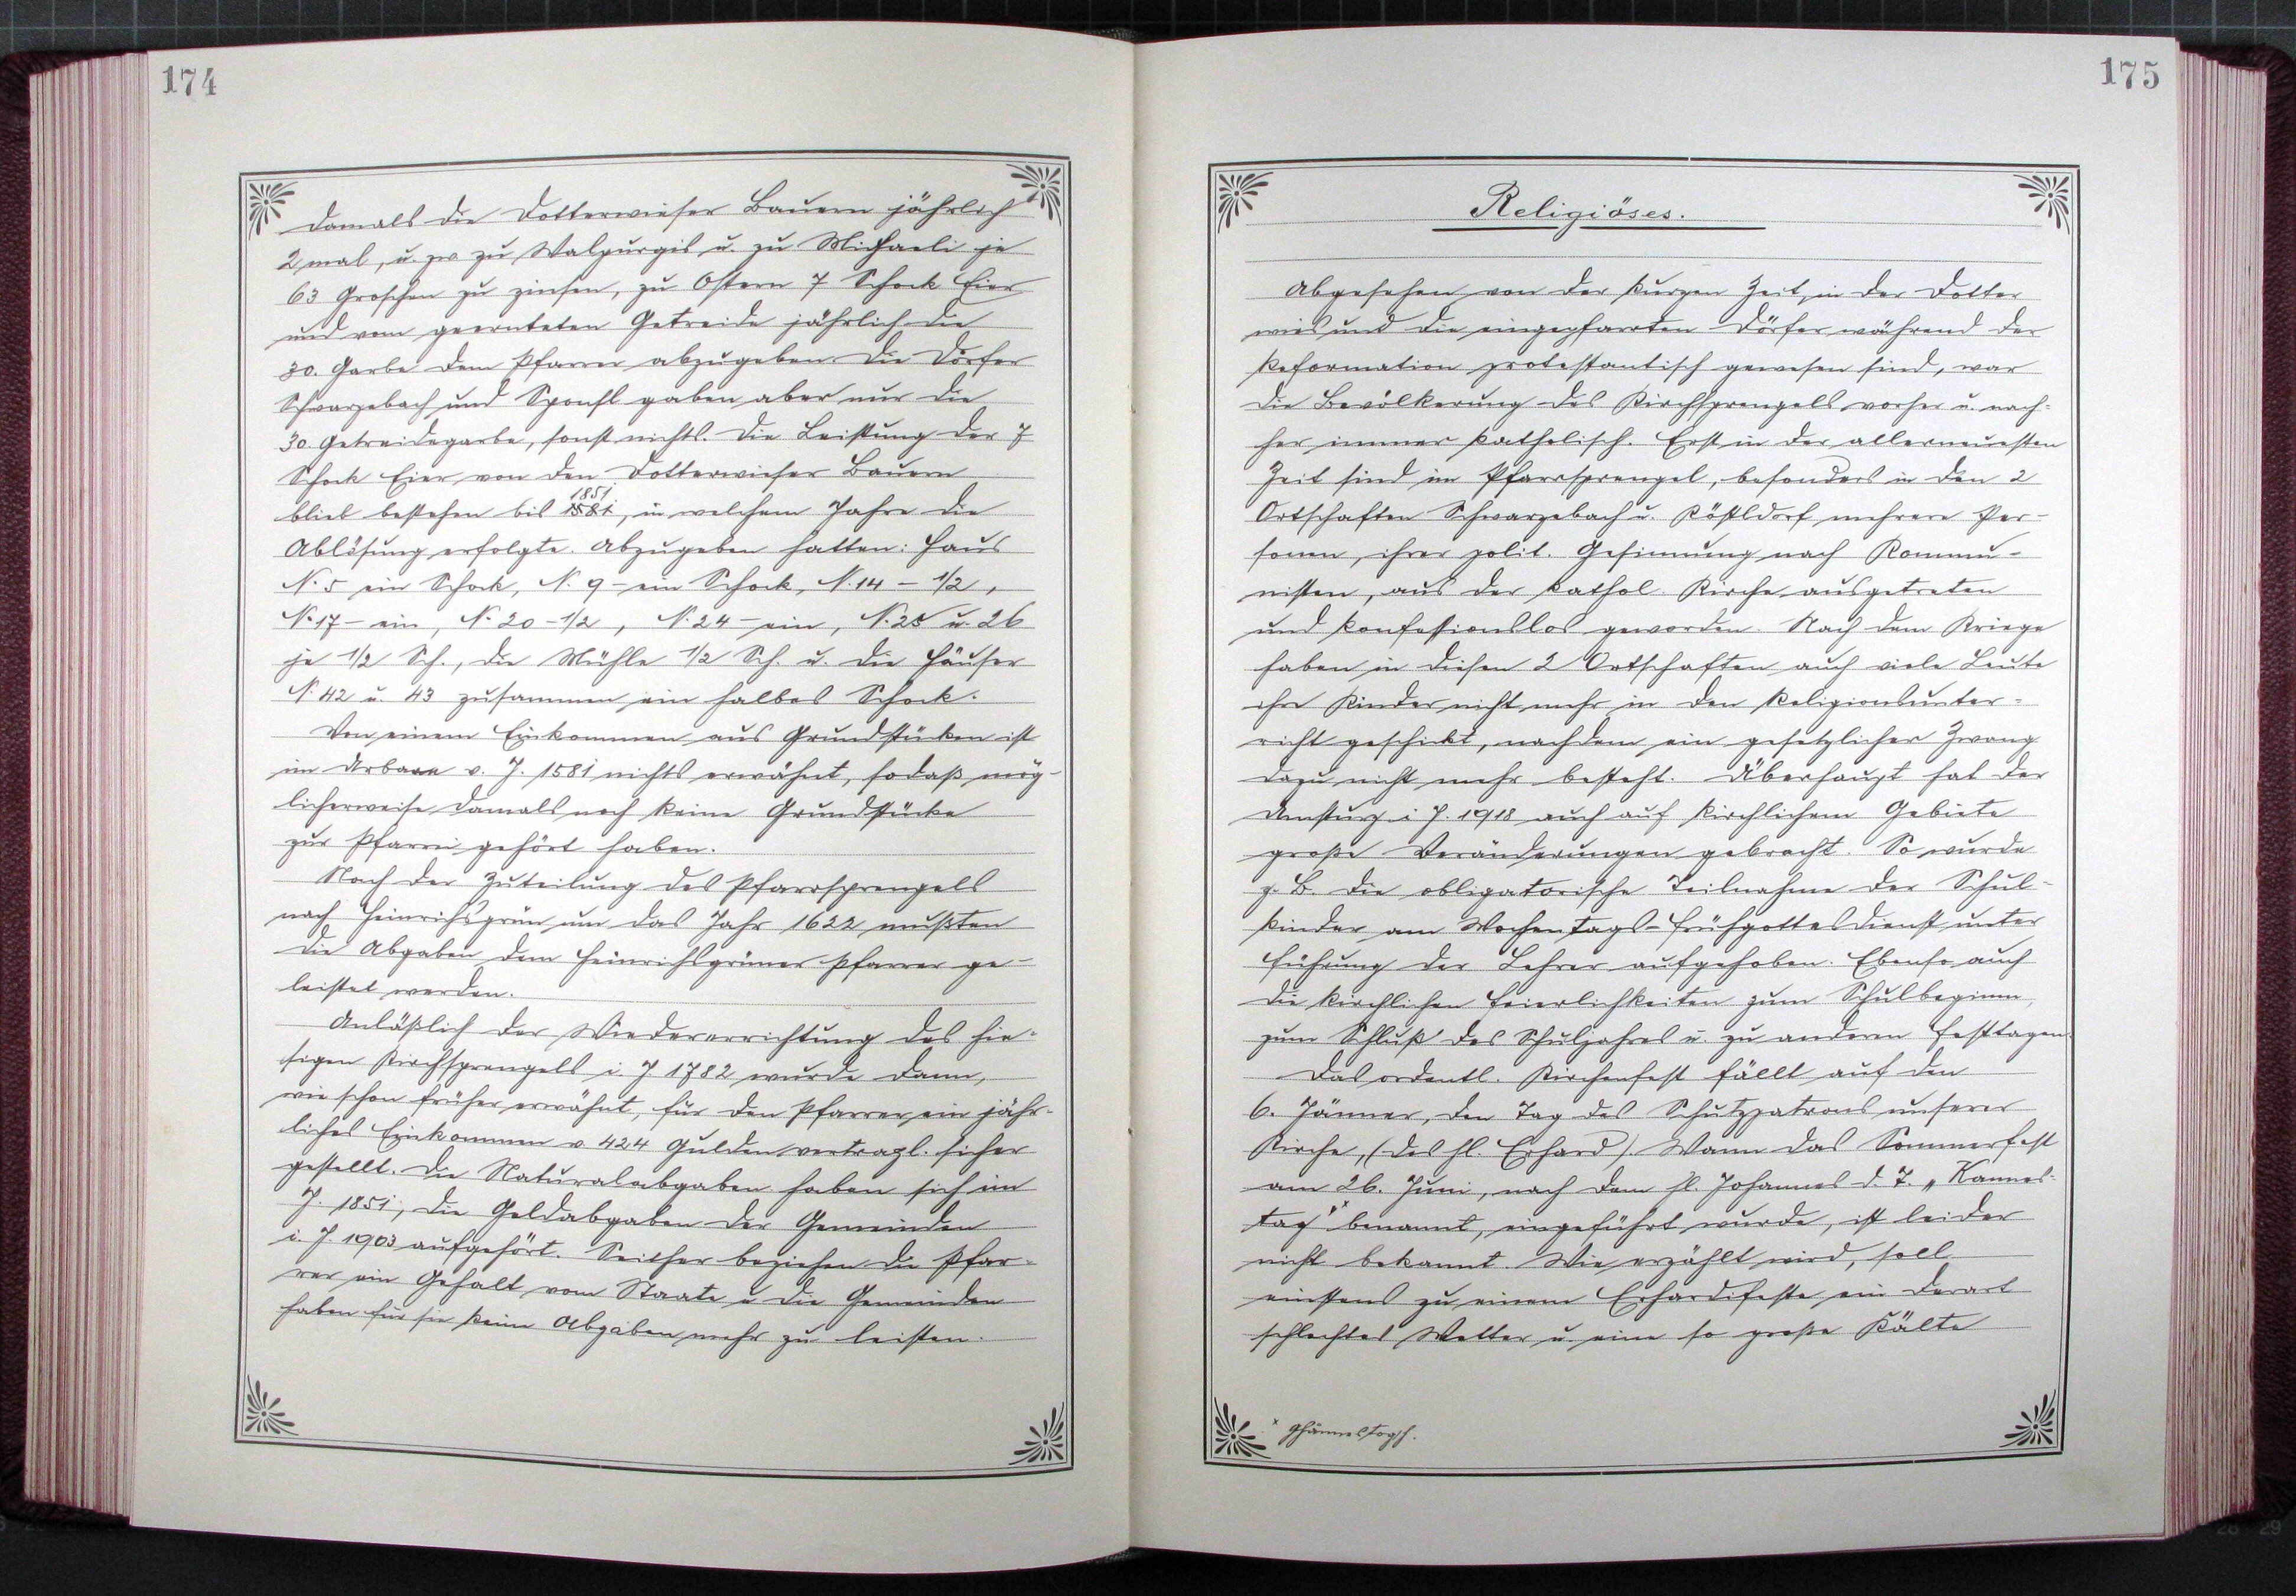 174
damals die Dotterwieser Bauern jährlich
2 mal, u. zw zu Walpurgis u. zu Michaeli je
63 Groschen zu zinsen, zu Ostern 7 Schock Eier
und vom geernteten Getreide jährlich die
30. Garbe dem Pfarrer abzugeben. Die Dörfer
Schwarzebach und Sponsl gaben aber nur die
30. Getreidegarbe, sonst nichts. Die Leistung der 7
Schock Eier von den Dotterwieser Bauern
1851
blieb bestehen bis 1581, in welchem Jahre die
Ablösung erfolgte. Abzugeben hatten: Haus
N. 5 ein Schock, N. 9 - ein Schock, N. 14 - 1/2,
N. 17 - ein, N. 20 - 1/2, N. 24 - ein, N. 25 u. 26
je 1/2 Sch., die Mühle 1/2 Sch. u. die Häuser
N. 42 u. 43 zusammen ein halbes Schock.
Von einem Einkommen aus Grundstücken ist
im v. J. 1581 nichts erwähnt, sodaß mög-
licherweise damals noch keine Grundstücke
zur Pfarrei gehört haben.
Nach der Zuteilung des Pfarrsprengels
nach Heinrichsgrün um das Jahr 1622 mußten
die Abgaben dem Heinrichsgrüner Pfarrer ge-
leistet werden.
Anläßlich der Wiedererrichtung des hie-
sigen Kirchsprengels i. J. 1782 wurde dann,
wie schon früher erwähnt, für den Pfarrer ein jähr-
liches Einkommen v. 424 Gulden vertragl. sicher
gestellt. Die Naturalabgaben haben sich im
J. 1851, die Geldabgaben der Gemeinden
i. J. 1903 aufgehört. Seither beziehen die Pfar-
rer ein Gehalt vom Staate u die Gemeinden
haben für sie keine Abgaben mehr zu leisten.
175
Religiöses.
Abgesehen von der kurzen Zeit, in der Dotter
wies und die eingepfarrten Dörfer während der
Reformation protestantisch gewesen sind, war
die Bevölkerung des Kirchsprengels vorher u. nach-
her immer katholisch. Erst in der allerneuesten
Zeit sind im Pfarrsprengel, besonders in den 2
Ortschaften Schwarzebach u. Köstldorf mehrere Per-
sonen, ihrer polit. Gesinnung nach Kommu-
nisten, aus der kathol. Kirche ausgetreten
und konfessionslos geworden. Nach dem Kriege
haben in diesen 2 Ortschaften auch viele Leute
ihre Kinder nicht mehr in den Religionsunter-
richt geschickt, nachdem ein gesetzlicher Zwang
dazu nicht mehr besteht. Überhaupt hat der
Umsturz i J. 1918 auch auf kirchlichem Gebiete
große Veränderungen gebracht. So wurde
z. B. die obligatorische Teilnahme der Schul-
kinder am Wochentags-Frühgottesdienst unter
Führung der Lehrer aufgehoben. Ebenso auch
die kirchlichen Feierlichkeiten zum Schulbeginn,
zum Schluß des Schuljahres u. zu anderen Festtagen.
Das ordentl. Kirchenfest fällt auf den
6. Jänner, den Tag des Schutzpatrons unserer
Kirche, (des hl. Erhard). Wann das Sommerfest
am 26. Juni, nach dem hl. Johannes d. T. „Kannes-
tag"x benannt, eingeführt wurde, ist leider
nicht bekannt. Wie erzählt wird, soll
einstens zu einem Erhardifeste ein derart
schlechtes Wetter u. eine so große Kälte
x